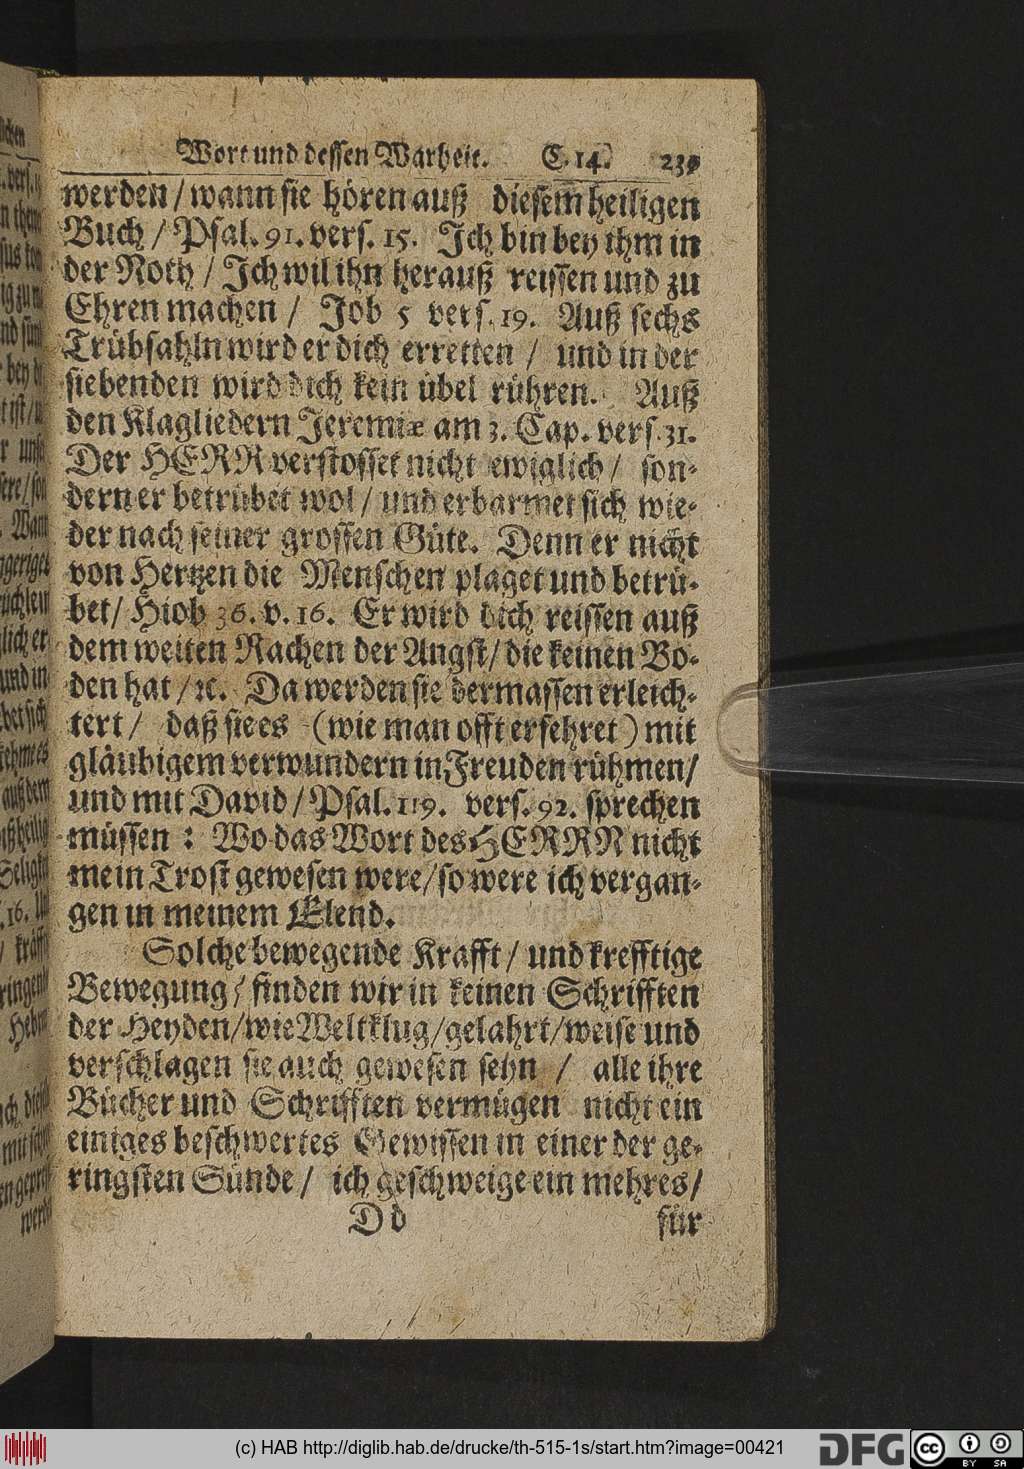 Wort und dessen Warheit. C. 14. 239
werden / wann sie hören auß diesem heiligen
Buch / Psal. 91. vers. 15. Ich bin bey ihm in
der Noth / Ich wil ihn herauß reissen und zu
Ehren machen / Job 5 vers. 19. Auß sechs
Trübsahln wird er dich erretten / und in der
siebenden wird dich kein übel rühren. Auß
den Klagliedern Jeremiæ am 3. Cap. vers. 31.
Der HERR verstosset nicht ewiglich / son-
dern er betrübet wol / und erbarmet sich wie-
der nach seiner grossen Güte. Denn er nicht
von Hertzen die Menschen plaget und betrü-
bet / Hiob 36. v. 16. Er wird dich reissen auß
dem weiten Rachen der Angst / die keinen Bo-
den hat / ꝛc. Da werden sie dermassen erleich-
tert / daß sie es (wie man offt erfehret) mit
gläubigem verwundern in Freuden rühmen /
und mit David / Psal. 119. vers. 92. sprechen
müssen : Wo das Wort des HERRN nicht
mein Trost gewesen were / so were ich vergan-
gen in meinem Elend.
Solche bewegende Krafft / und krefftige
Bewegung / finden wir in keinen Schrifften
der Heyden / wie Weltklug / gelahrt / weise und
verschlagen sie auch gewesen seyn / alle ihre
Bücher und Schrifften vermügen nicht ein
einiges beschwertes Gewissen in einer der ge-
ringsten Sünde / ich geschweige ein mehres /
Dd für
(c) HAB http://diglib.hab.de/drucke/th-515-1s/start.htm?image=00421
DFG cc BY SA